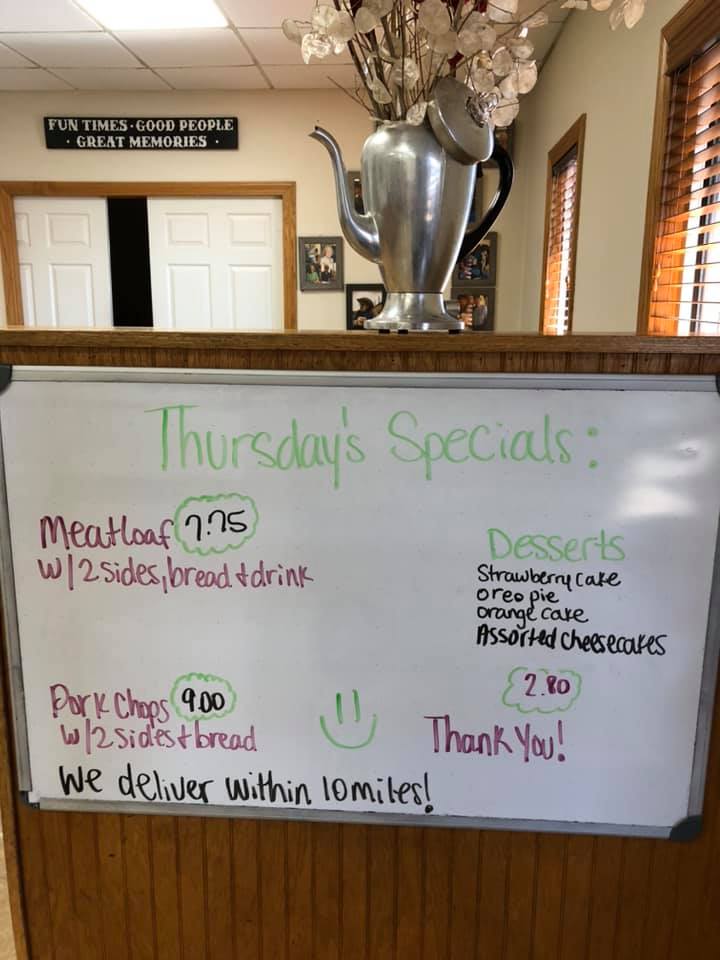 FUN TIMES · GOOD PEOPLE
· GREAT MEMORIES ·
Thursday's Specials:
Meatloaf 7.75
w/2 sides, bread + drink
Desserts
Strawberry cake
oreo pie
orange cake
Assorted cheesecakes
2.80
Pork Chops 9.00
w/2 sides + bread
Thank You!
We deliver within 10 miles!